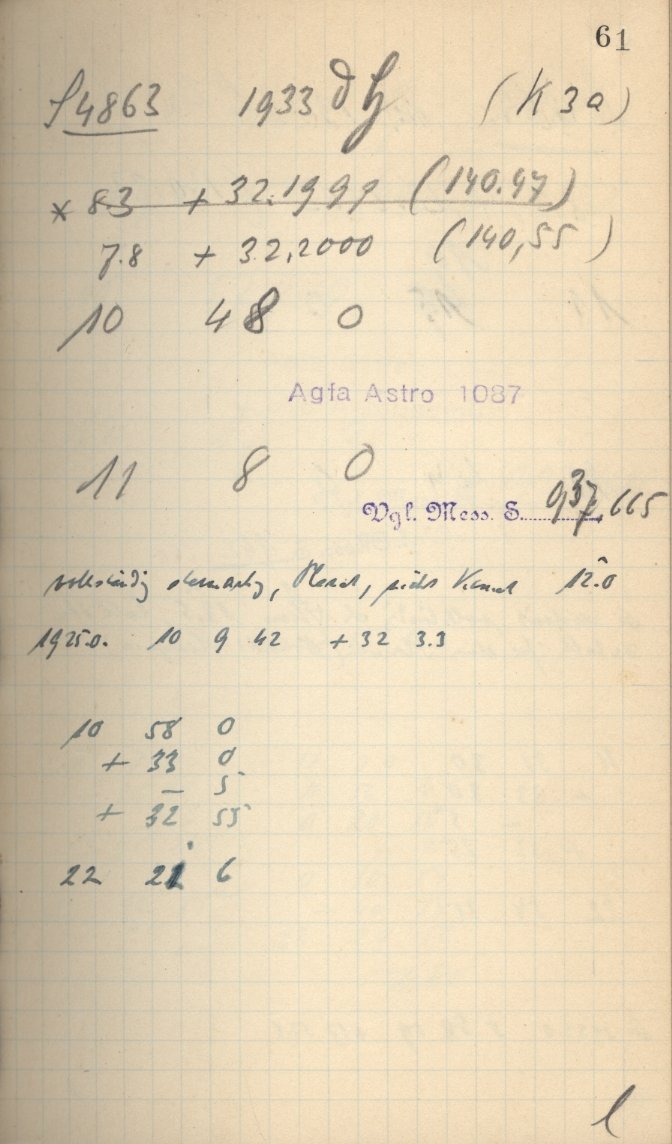 61
S 4863 1933 (K 3a)
* 83 + 32.1999 (140.47)
7.8 + 32,2000 (140,55)
10 48 0
Agfa Astro 1087
11 8 0
Vgl. Mess. S. 937, 665
vollständig sternartig, Planet, nicht Komet 12.0
1925.0. 10 9 42 + 32 3.3
10 58 0
+ 33 0
- 5
+ 32 55
22 21 6